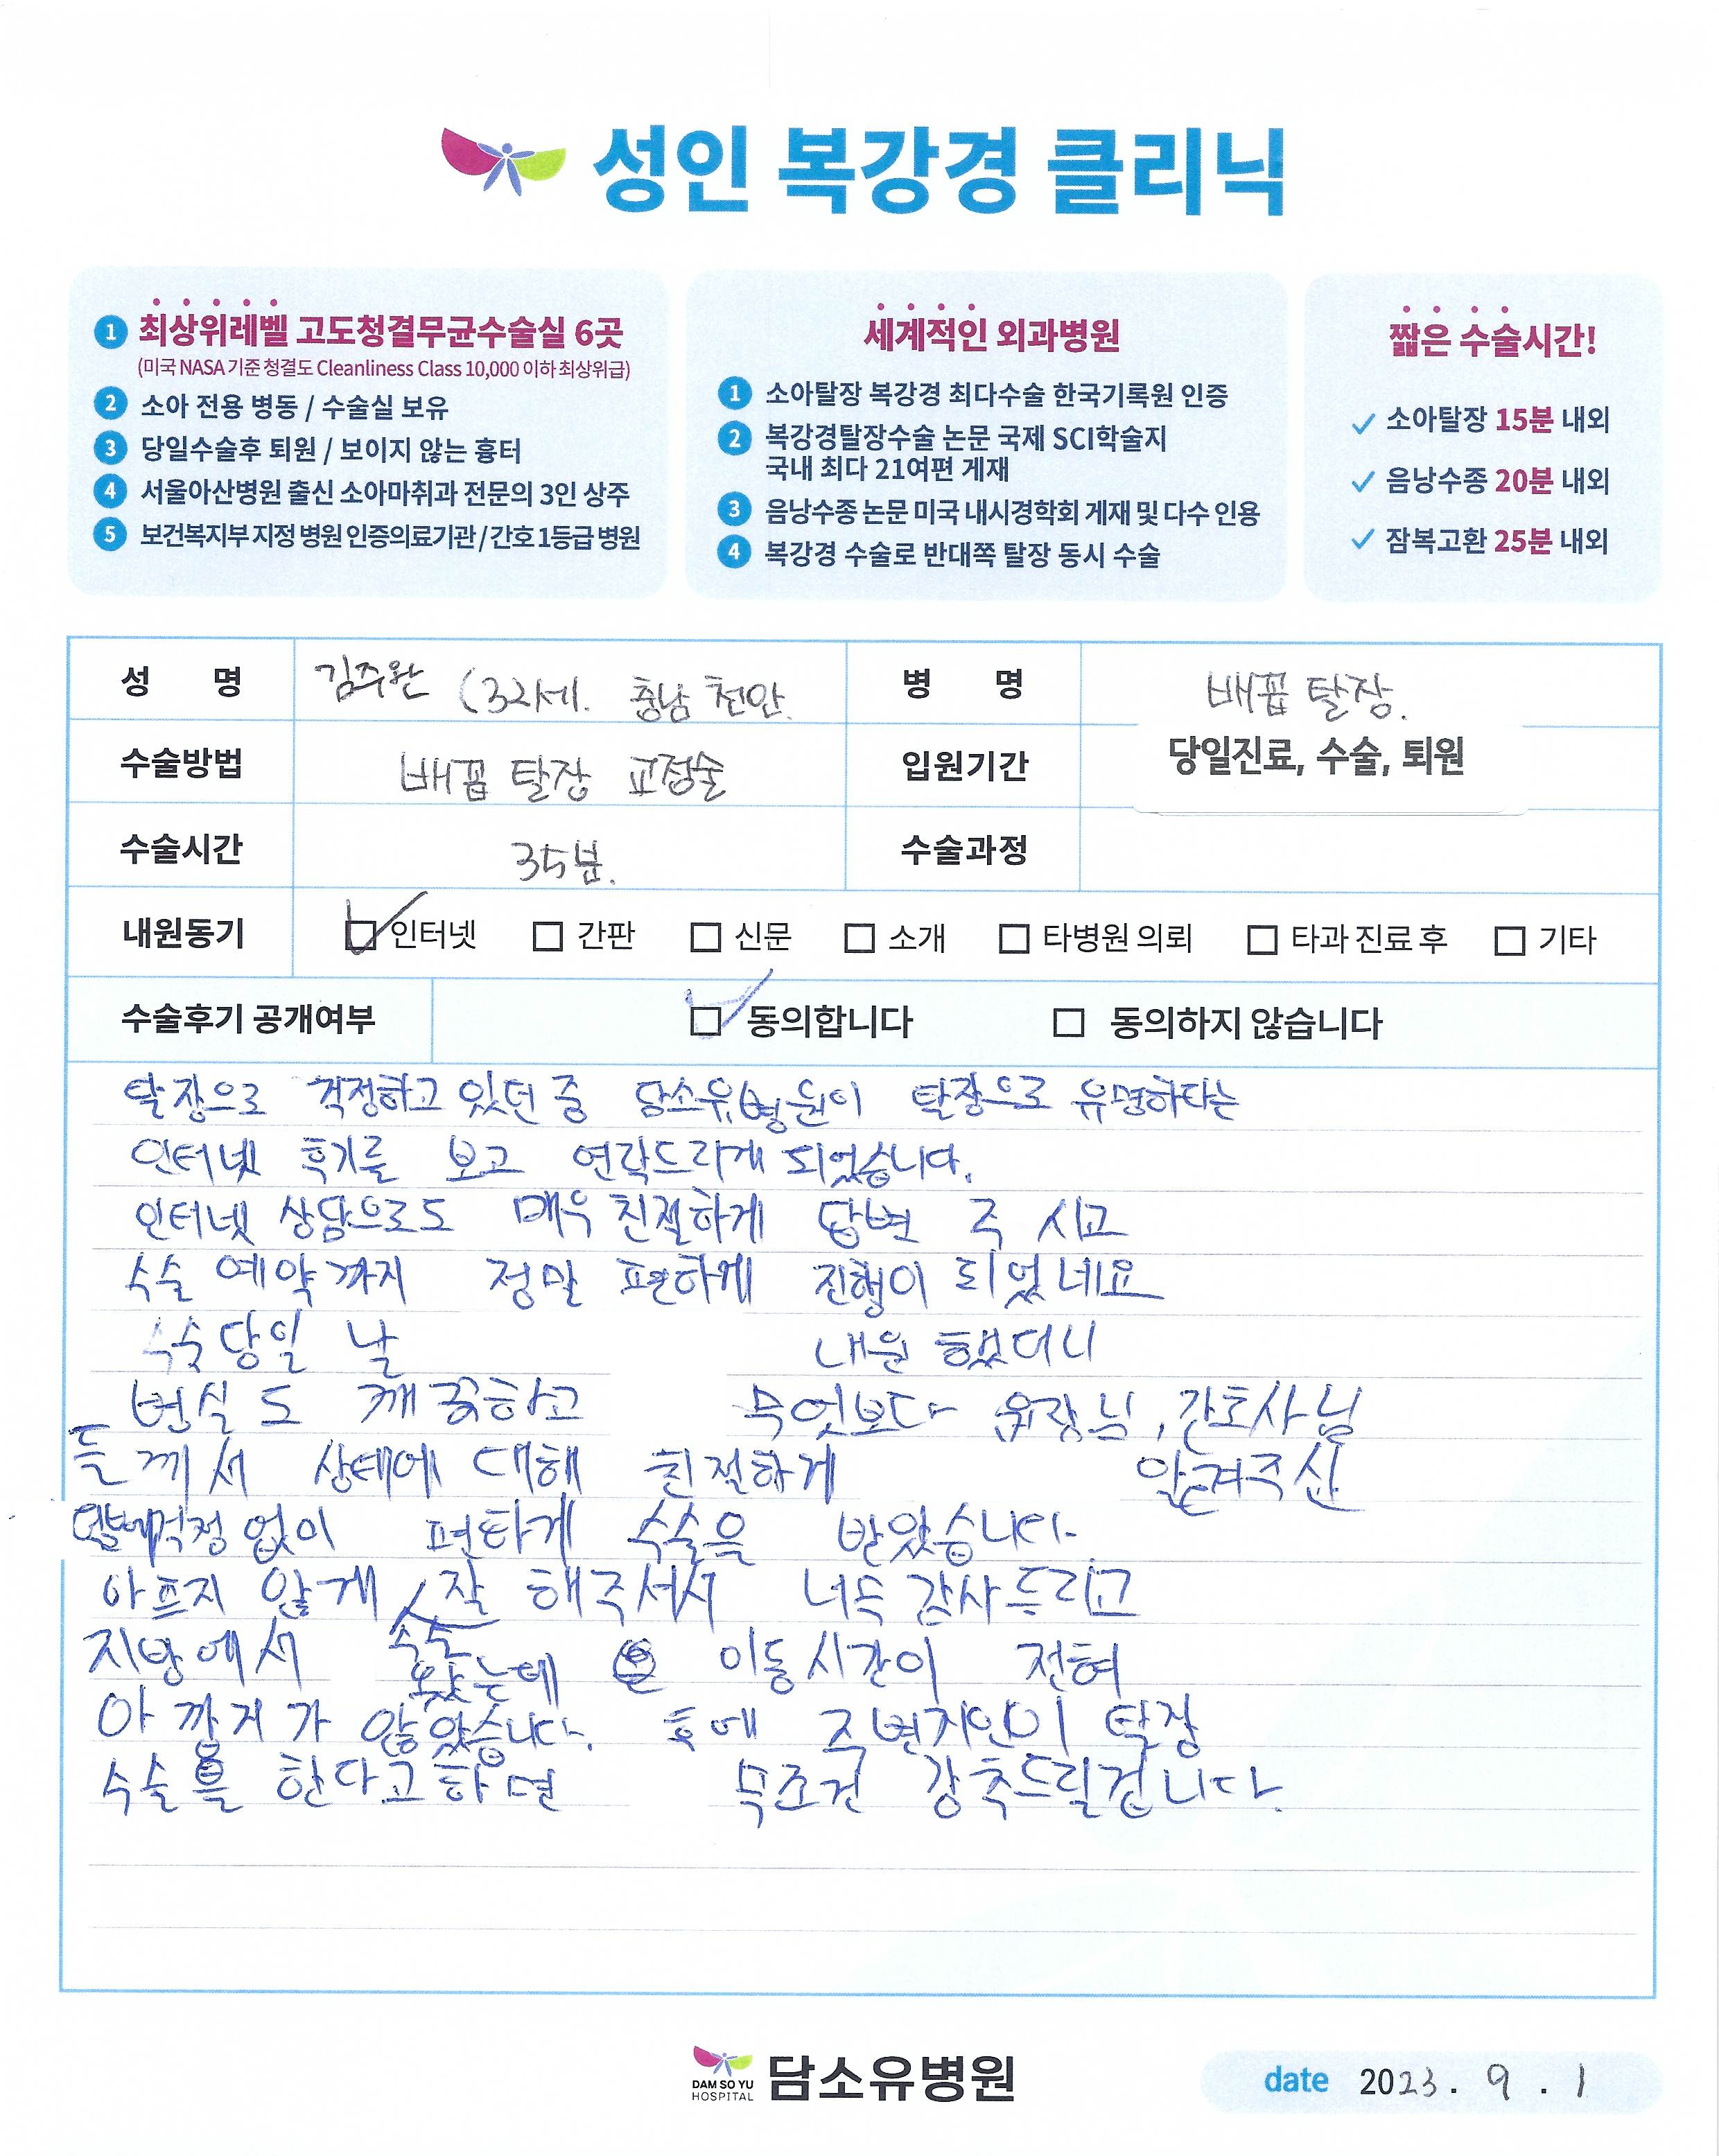 성인 복강경 클리닉
1 최상위레벨 고도청결무균수술실 6곳
(미국 NASA 기준 청결도 Cleanliness Class 10,000 이하 최상위급)
2 소아 전용 병동 / 수술실 보유
3 당일수술후 퇴원 / 보이지 않는 흉터
4 서울아산병원 출신 소아마취과 전문의 3인 상주
5 보건복지부 지정 병원 인증의료기관 / 간호 1등급 병원
세계적인 외과병원
1 소아탈장 복강경 최다수술 한국기록원 인증
2 복강경탈장수술 논문 국제 SCI학술지
국내 최다 21여편 게재
3 음낭수종 논문 미국 내시경학회 게재 및 다수 인용
4 복강경 수술로 반대쪽 탈장 동시 수술
짧은 수술시간!
소아탈장 15분 내외
음낭수종 20분 내외
잠복고환 25분 내외
성 명 김주완 (32세. 충남 천안. 병 명 배꼽 탈장.
수술방법 배꼽 탈장 교정술 입원기간 당일진료, 수술, 퇴원
수술시간 35분. 수술과정
내원동기 인터넷 간판 신문 소개 타병원 의뢰 타과 진료 후 기타
수술후기 공개여부 동의합니다 동의하지 않습니다
탈장으로 걱정하고 있던 중 담소유병원이 탈장으로 유명하다는
인터넷 후기를 보고 연락드리게 되었습니다.
인터넷 상담으로도 매우 친절하게 답변 주시고
수술 예약까지 정말 편하게 진행이 되었네요
당일 날 내원 했더니
병실도 깨끗하고 무엇보다 원장님, 간호사님
들께서 상태에 대해 친절하게 알려주신
걱정 없이 편하게 수술을 받았습니다.
아프지 않게 수술 잘 해주셔서 너무 감사드리고
지방에서 왔는데 이동시간이 전혀
아깝지가 않았습니다. 후에 주변지인이 탈장
수술을 한다고하면 무조건 강추드릴겁니다.
DAM SO YU
HOSPITAL
담소유병원
date 2023. 9. 1